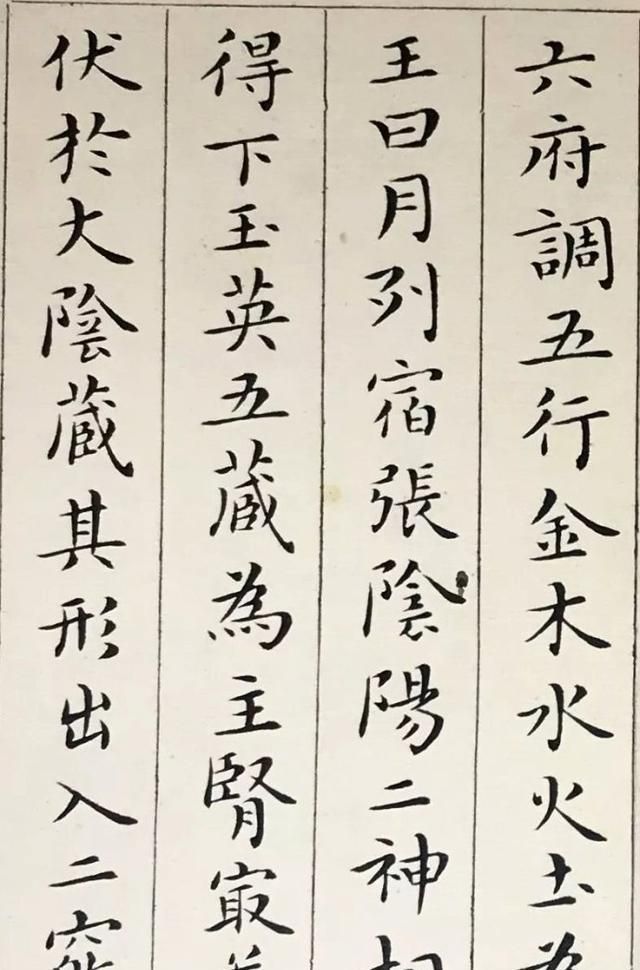 六府調五行金木水火土為
王曰月列宿張陰陽二神
得下玉英五藏為主腎冣
伏於大陰藏其形出入二竅